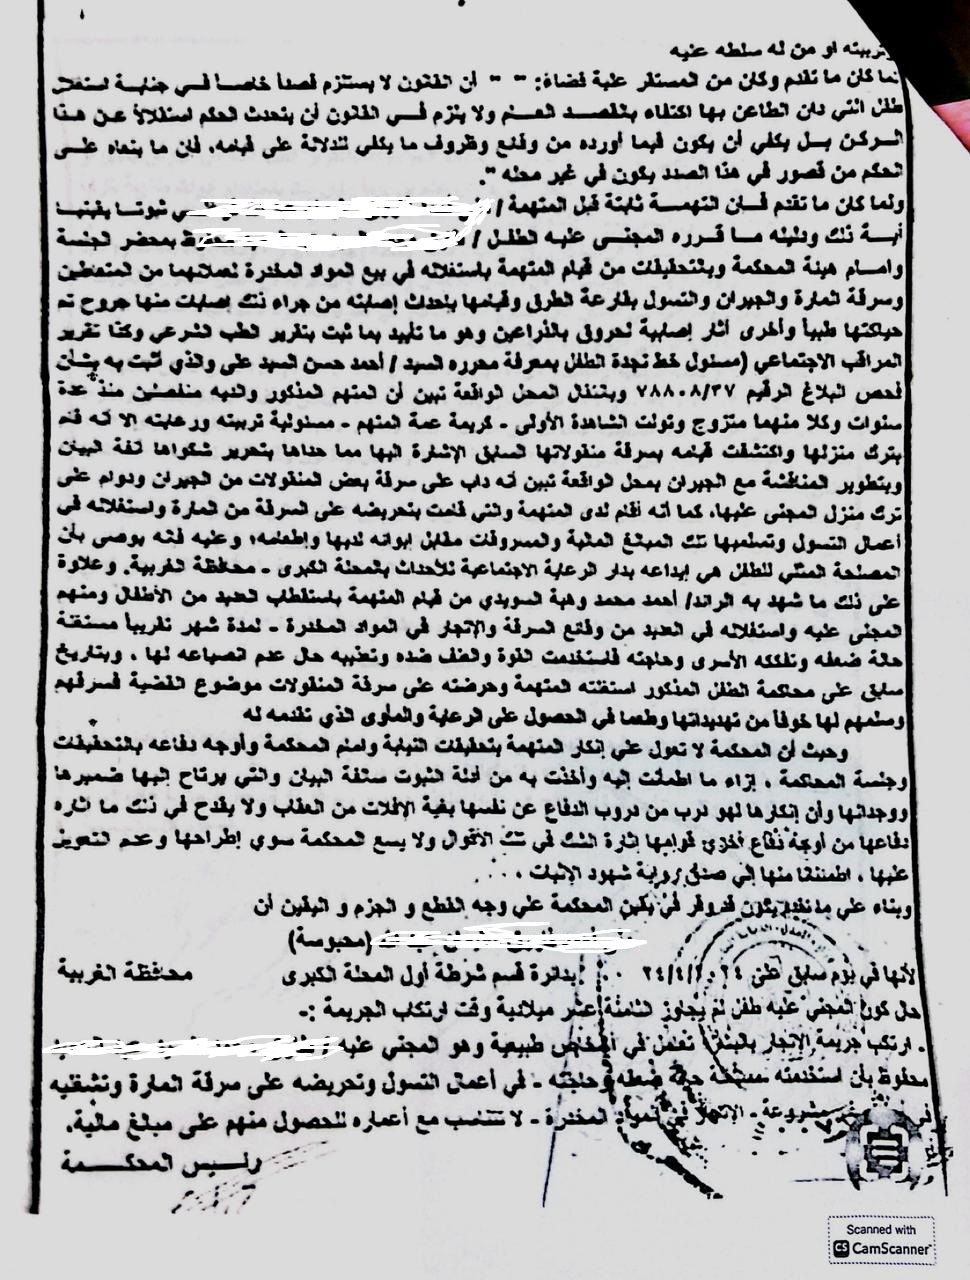 وتربيته او من له سلطه عليه
لما كان ما تقدم وكان من المستقر علية قضاء: " - أن القانون لا يستلزم قصداً خاصاً في جناية استغلال
طفل التي دان الطاعن بها اكتفاء بالقصد العام ولا يلزم في القانون أن يتحدث الحكم استقلالاً عن هذا
الركن بل يكفي أن يكون فيما أورده من وقائع وظروف ما يكفي للدلالة على قيامه، فإن ما ينعاه على
الحكم من قصور في هذا الصدد يكون في غير محله ".
ولما كان ما تقدم فإن التهمة ثابتة قبل المتهمة / ثبوتا يقينيا
أية ذلك ودليله ما قرره المجني عليه الطفل / بمحضر الجلسة
وامام هيئة المحكمة وبالتحقيقات من قيام المتهمة باستغلاله في بيع المواد المخدرة لعملائهما من المتعاطين
وسرقة المارة والجيران والتسول بقارعة الطرق وقيامها بإحداث إصابته من جراء ذلك إصابات منها جروح تم
حياكتها طبياً وأخرى أثار إصابية لحروق بالذراعين وهو ما تأيد بما ثبت بتقرير الطب الشرعي وكذا تقرير
المراقب الاجتماعي (مسئول خط نجدة الطفل بمعرفة محرره السيد / أحمد حسن السيد على والذي أثبت به بشأن
فحص البلاغ الرقيم ٧٨٨٠٨/٣٧ وبانتقال المحل الواقعة تبين أن المتهم المذكور والديه منفصلين منذ عدة
سنوات وكلا منهما متزوج وتولت الشاهدة الأولى - كريمة عمة المتهم - مسئولية تربيته ورعايته الا انه قام
بترك منزلها واكتشفت قيامه بسرقة منقولاتها السابق الإشارة اليها مما حداها بتحرير شكواها أنفة البيان
وبتطوير المناقشة مع الجيران بمحل الواقعة تبين أنه داب على سرقة بعض المنقولات من الجيران ودوام على
ترك منزل المجنى عليها، كما أنه أقام لدى المتهمة والتي قامت بتحريضه على السرقة من المارة واستغلاله في
أعمال التسول وتسلمها تلك المبالغ المالية والمسروقات مقابل ايوائه لديها وإطعامه؛ وعليه فإنه يوصى بأن
المصلحة المثلي للطفل هي إيداعه بدار الرعاية الاجتماعية للأحداث بالمحلة الكبرى - محافظة الغربية. وعلاوة
على ذلك ما شهد به الرائد/ أحمد محمد وهبة السويدي من قيام المتهمة باستقطاب العديد من الأطفال ومنهم
المجنى عليه واستغلاله في العديد من وقائع السرقة والإتجار في المواد المخدرة - لمدة شهر تقريباً مستغلة
حالة ضعفه وتفككه الأسرى وحاجته فاستخدمت القوة والعنف ضده وتعذيبه حال عدم انصياعه لها ، وبتاريخ
سابق على محاكمة الطفل المذكور استغلته المتهمة وحرضته على سرقة المنقولات موضوع القضية فسرقهم
وسلمهم لها خوفاً من تهديداتها وطمعا في الحصول على الرعاية والمأوى الذي تقدمه له
وحيث أن المحكمة لا تعول علي إنكار المتهمة بتحقيقات النيابة وامام المحكمة وأوجه دفاعه بالتحقيقات
وجلسة المحكمة ، إزاء ما اطمأنت إليه وأخذت به من أدلة الثبوت سالفة البيان والتي يرتاح إليها ضميرها
ووجدانها وأن إنكارها لهو درب من دروب الدفاع عن نفسها بغية الإفلات من العقاب ولا يقدح في ذلك ما اثاره
دفاعها من أوجه دفاع أخري قوامها إثارة الشك في تلك الاقوال ولا يسع المحكمة سوي إطراحها وعدم التعويل
عليها ، اطمئنانا منها إلي صدق رواية شهود الإثبات ...
وبناء علي ما تقدم يكون قد وقر في يقين المحكمة علي وجه القطع و الجزم و اليقين أن
(محبوسة)
لأنها في يوم سابق على ٢٤/٤/٢٠٢٤ بدائرة قسم شرطة أول المحلة الكبرى محافظة الغربية
حال كون المجني عليه طفل لم يجاوز الثامنة عشر ميلادية وقت ارتكاب الجريمة :-
. ارتكب جريمة الإتجار بالبشر بأن تعامل في أشخاص طبيعية وهو المجني عليه
محفوظ بأن استخدمته مستغلة حالة ضعفه وحاجته - في أعمال التسول وتحريضه على سرقة المارة وتشغليه
في مشروعة - الاتجار في المواد المخدرة - لا تتناسب مع أعماره للحصول منهم على مبالغ مالية.
رئيس المحكمة
Scanned with
CS CamScanner